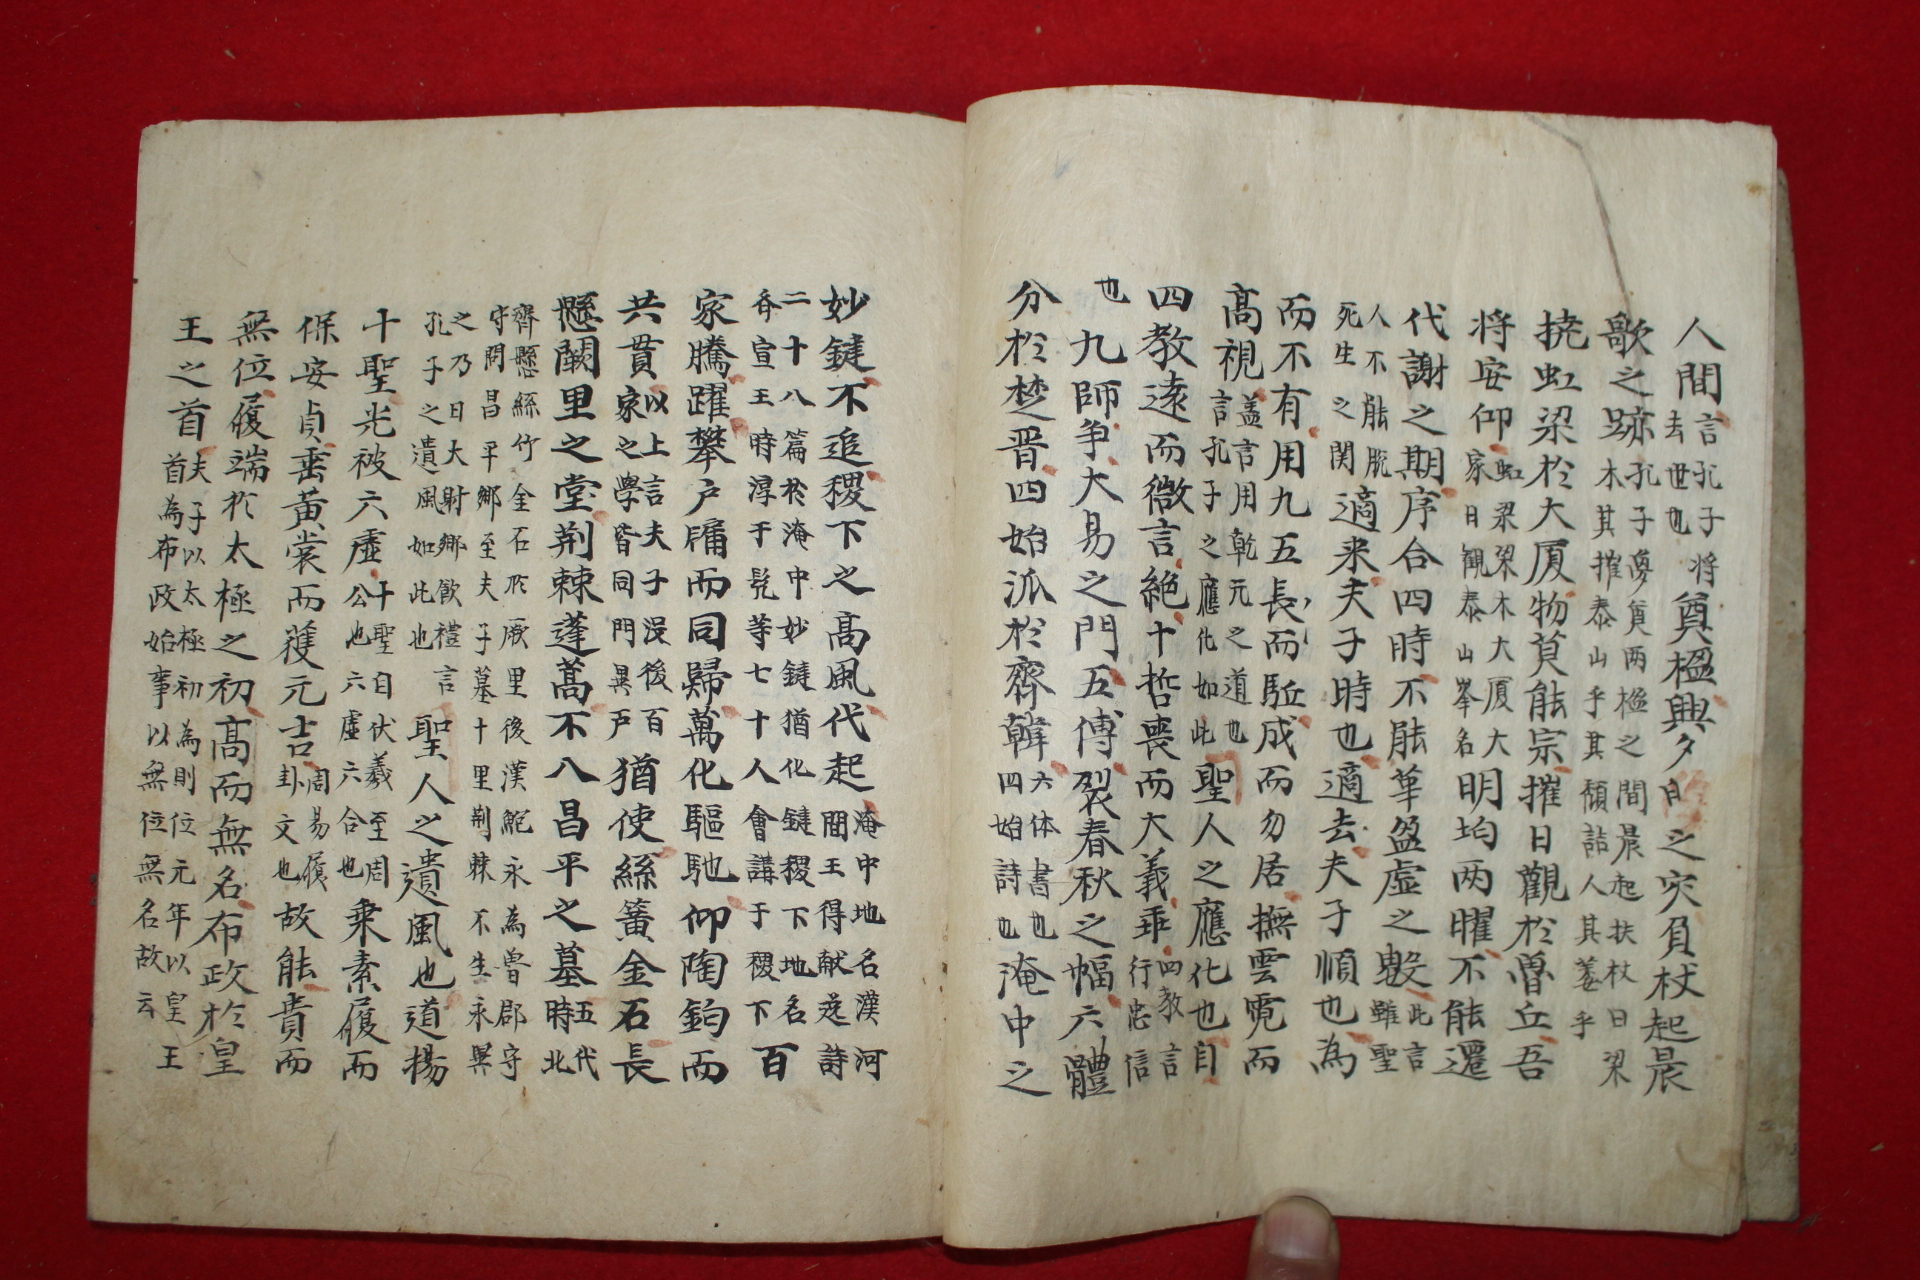 人間言孔子將去世也奠楹興夕之灾負杖起晨
歌之跡孔子夢奠兩楹之間晨起扶杖曰梁木其摧泰山乎其頹詰人其萎乎
撓虹梁於大厦物莫能宗摧日觀於魯丘吾
将安仰虹梁梁木大厦大家日観泰山峯名明均两曜不能還
代謝之期序合四時不能革盈虛之數此言雖聖
人不能脫死生之関適来夫子時也適去夫子順也為
而不有用九五長而駈成而勿居撫雲霓而
高視盖言用乾元之道也言孔子之應化如此聖人之應化也自
四教遠而微言絶十哲喪而大義乖四教言行忠信
也九師争大易之門五傳裂春秋之幅六體
分於楚晋四始派於齊韓六体書也四始詩也淹中之
妙鍵不追稷下之髙風代起淹中地名漢河間王得献逸詩
二十八篇於淹中妙鍵猶化鍵稷下地名斉宣王時淳于髡等七十人會講于稷下百
家騰躍攀户牖而同歸萬化驅馳仰陶鈞而
共貫以上言夫子没後百家之學皆同門異戶猶使絲簧金石長
懸闕里之堂荆棘蓬蒿不入昌平之墓五代時北
齊懸絲竹金石於厥里後漢鮑永為魯郡守守問昌平郷至夫子墓十里荆棘不生永異
之乃曰大射郷飲禮言孔子之遺風如此也聖人之遺風也道揚
十聖光被六虚十聖自伏羲至周公也六虚六合也乗素履而
保安貞垂黄裳而獲元吉周易履卦文也故能貴而
無位履端於太極之初髙而無名布政於皇
王之首夫子以太極初為則位元年以皇王首為布政始事以無位無名故云